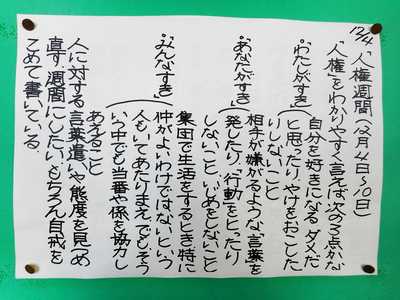 12/4 人権週間(12月4日〜10日)
「人権」をわかりやすく言えば次の3点かな
“わたしがすき”
自分を好きになる ダメだ
と思ったり、やけをおこした
りしないこと
“あなたがすき”
相手が嫌がるような言葉を
発したり、行動をとったり
しないこと、いじめをしないこと
“みんなすき”
集団で生活をするとき特に
仲がよいわけではないという
人もいてあたりまえ でもそう
いう中でも当番や係を協力し
あえること
人に対する言葉遣いや態度を見つめ
直す週間にしたい。もちろん自戒を
こめて書いている。